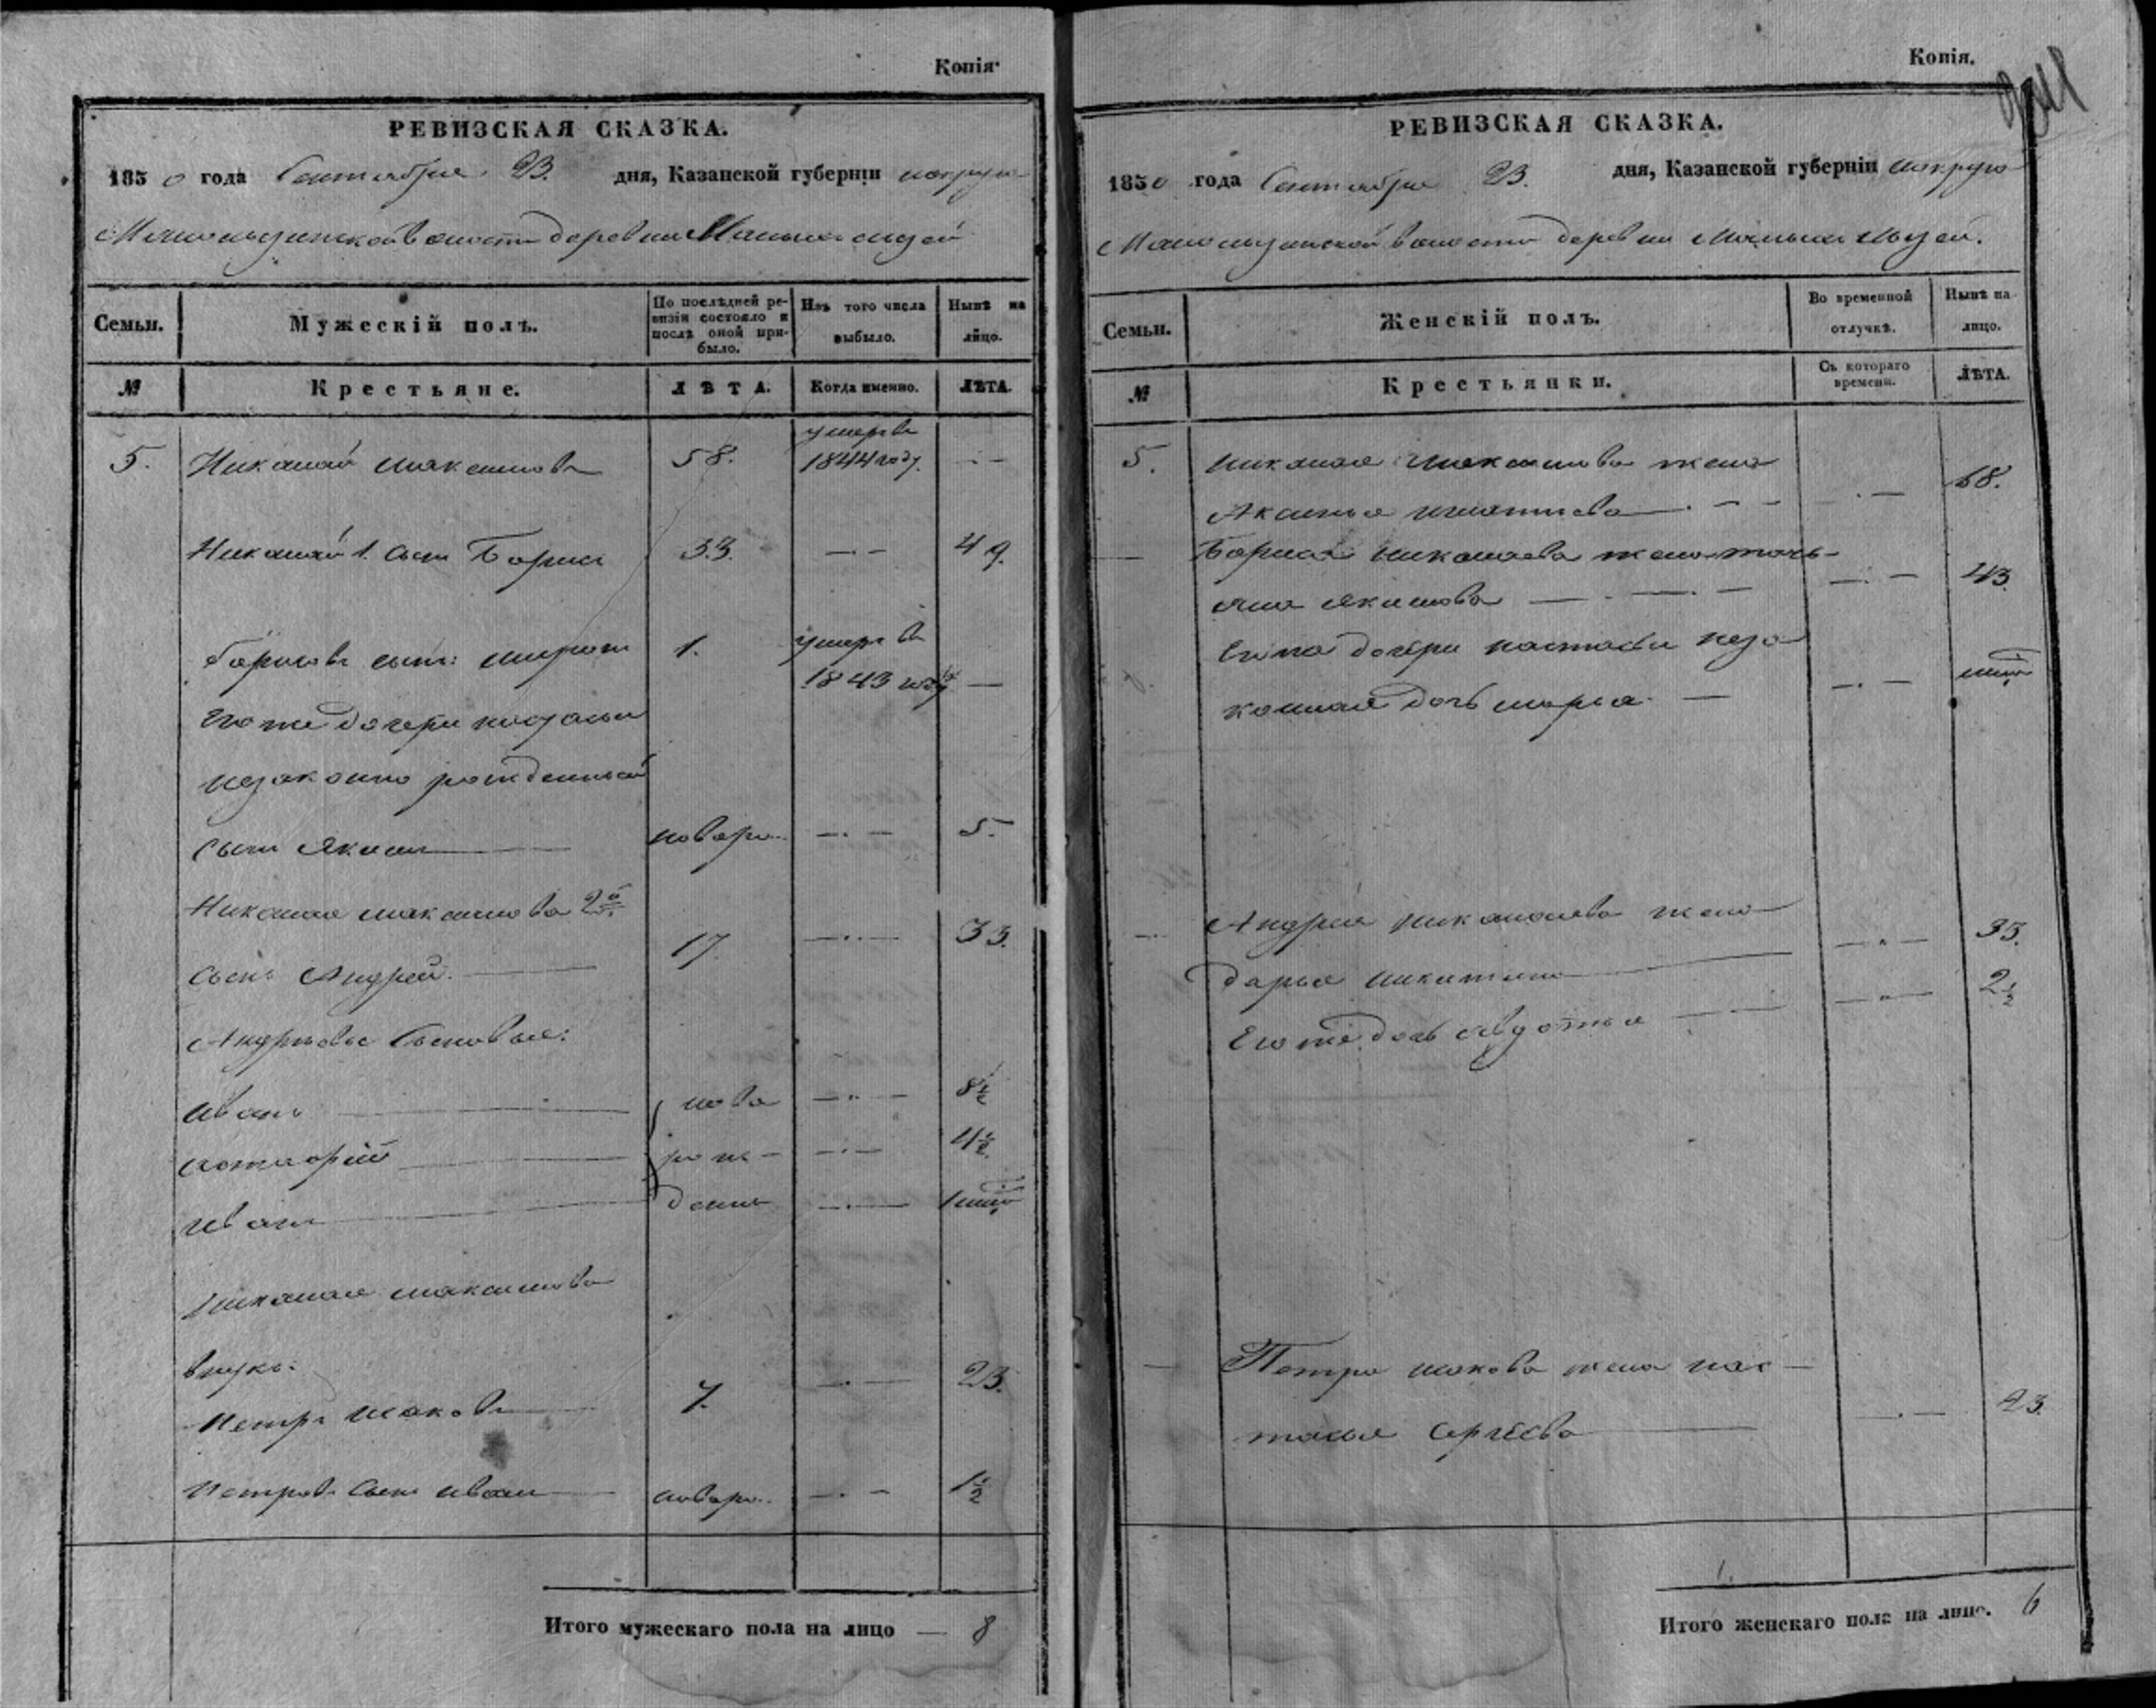 Копія.
РЕВИЗСКАЯ СКАЗКА.
1850 года Сентября 23. дня, Казанской губерніи
волости деревни
Семьи.
Мужескій полъ.
По послѣдней ре-
визіи состояло и
послѣ оной при-
было.
Изъ того числа
выбыло.
Нынѣ на
лицо.
№
Крестьяне.
ЛѢТА.
Когда именно.
ЛѢТА.
5. Николай Максимовъ 58. умеръ въ
1844 году.
Николай 1. сынъ Борисъ 33. 49.
Борисовъ сынъ 1. умеръ въ
1843 году
Его же дочери
незаконно рожденный
сынъ Яким новоро. 5.
Николая Максимова 2й
сынъ Андрей. 17. 33.
Андреевы сыновья:
Иванъ ново 8½
Григорій рож- 4½
Иванъ денн 1
Николая Максимова
внукъ:
Петръ 7. 23.
Петровъ сынъ Иванъ новоро. 1½
Итого мужескаго пола на лицо — 8
Копія.
РЕВИЗСКАЯ СКАЗКА.
1850 года Сентября 23. дня, Казанской губерніи
волости деревни
Семьи.
Женскій полъ.
Во временной
отлучкѣ.
Нынѣ на
лицо.
№
Крестьянки.
Съ котораго
времени.
ЛѢТА.
5. Николая Максимова жена
Аксинья Игнатьева 68.
Бориса Николаева жена
Якимова 43
Его дочери Настасьи неза-
конная дочь Марья
Андрея Николаева жена
Дарья Никитина 35.
Его же дочь Авдотья 2½
Петра жена Нас-
тасья Сергеева 23.
Итого женскаго пола на лицо. 6